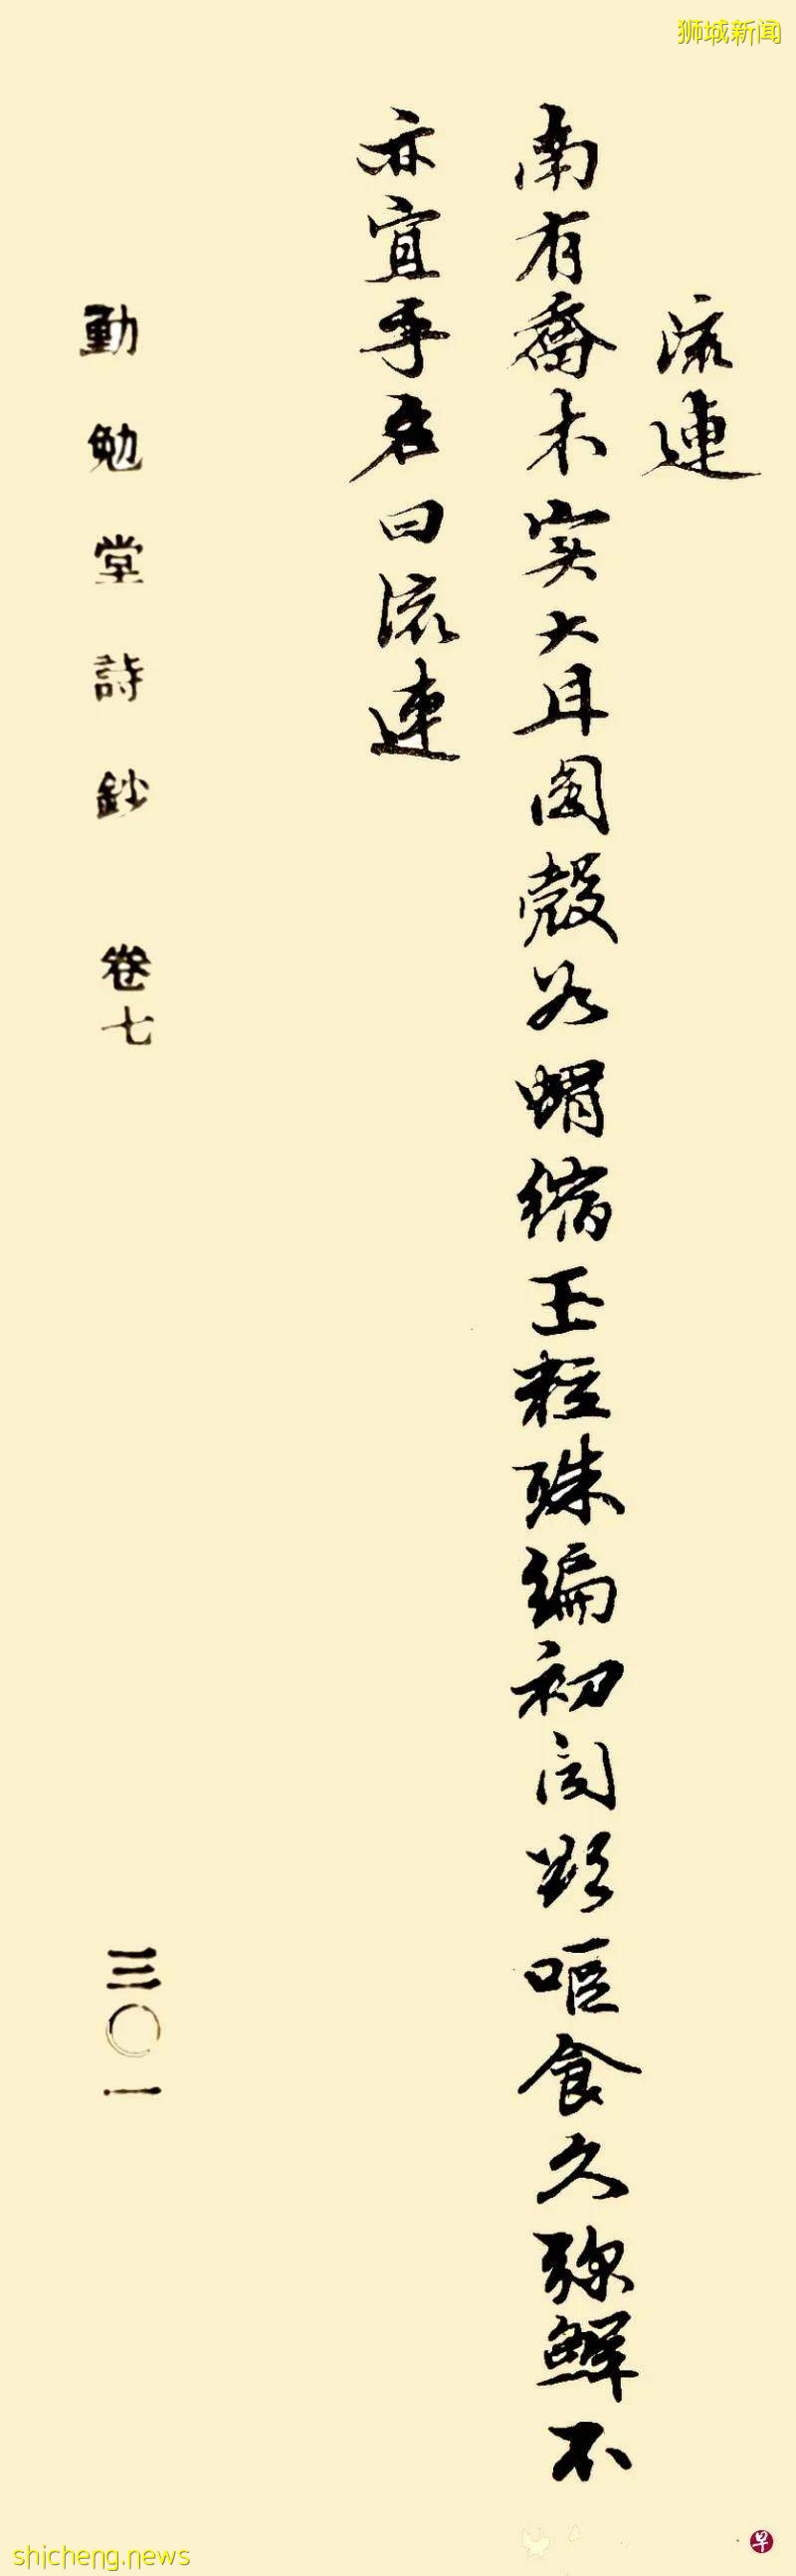 狮城新闻
流連
南有喬木实大且圆殼如蝟縮玉粒珠编初闻欲呕食久弥鮮不
亦宜乎名曰流連
勤勉堂詩鈔 卷七
三〇一
早
shicheng.news